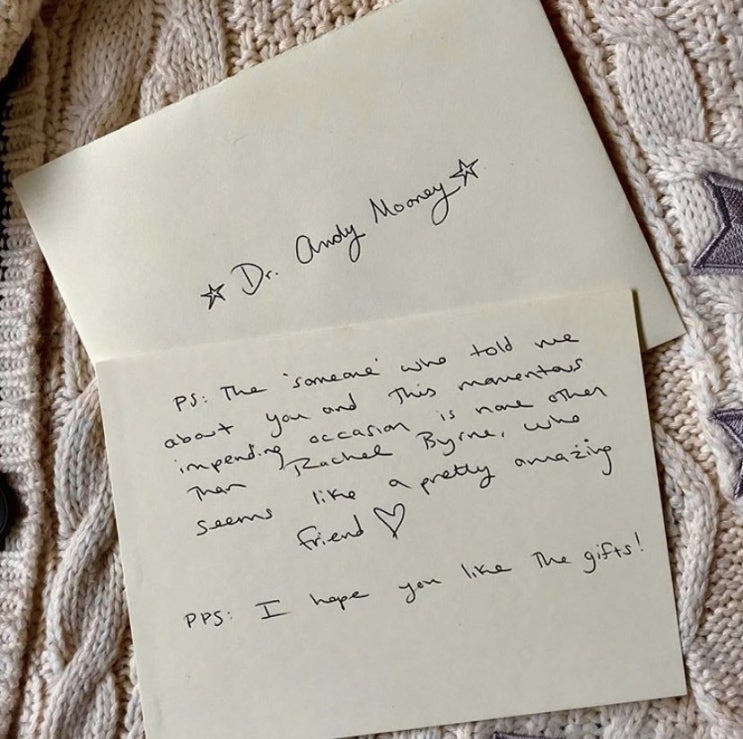 ☆ Dr. Andy Mooney ☆
PS: The 'someone' who told me
about you and this momentous
impending occasion is none other
than Rachel Byrne, who
seems like a pretty amazing
friend ♡
PPS: I hope you like the gifts!